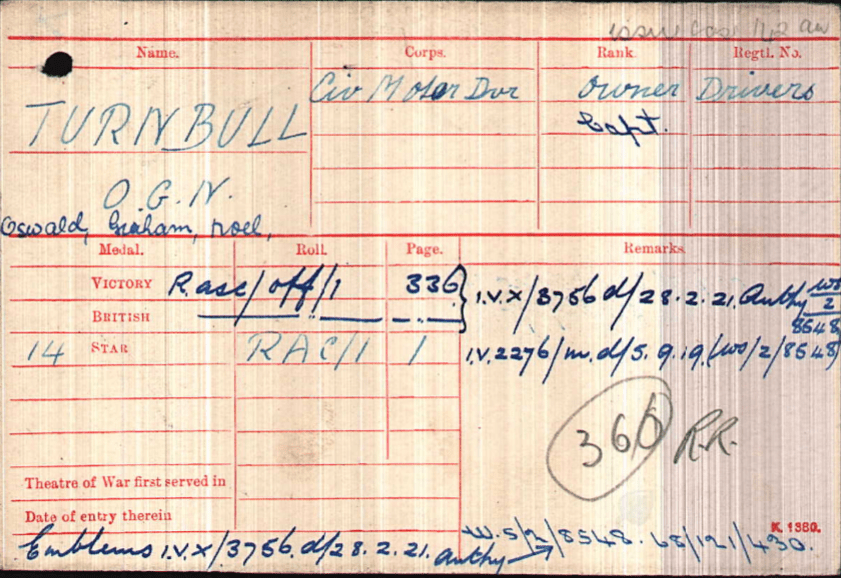 issue
Name. Corps. Rank. Regtl. No.
Civ Motor Dvr Owner Drivers
TURNBULL Capt.
O.G.N.
Oswald, Graham, Noel,
Medal. Roll. Page. Remarks.
VICTORY R.asc/off/1 336 I.V.X/3756 d/28.2.21. Authy WS
BRITISH —— " —— — " — 2
8548
14 STAR RAC/1 1 I.V.2276/m.d/5.9.19.(WS/2/8548)
366 R.R.
Theatre of War first served in
Date of entry therein
K. 1380.
Emblems I.V.X/3756. d/28.2.21. authy → W.5/2/8548. 68/121/430.